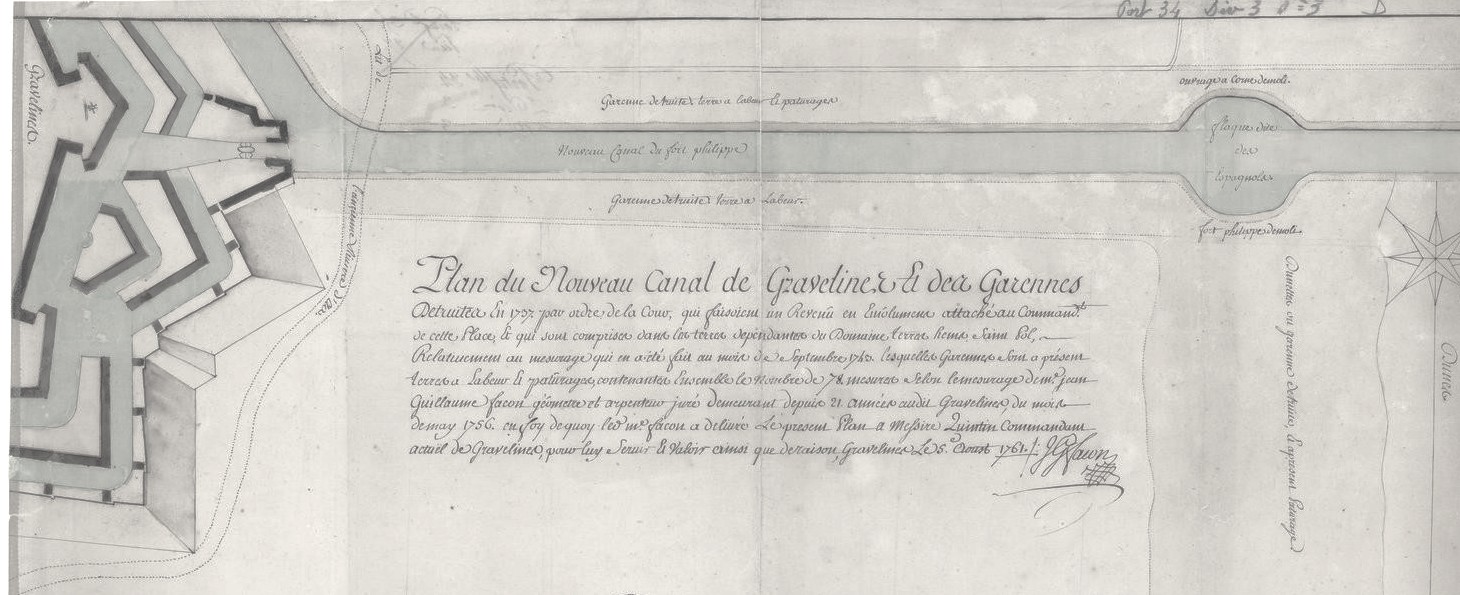 Port 34 Div 3 P=3 D
Gravelines.
ouvrage a Corne demoli.
Garenne detruite terre a labeur Et paturages
flaque dite
des
Espagnols.
Nouveau Canal du fort philippe
Garenne detruite terre a Labeur.
fort philippe demoli.
L'ancienne Riviere d'Aa.
Plan du Nouveau Canal de Gravelines Et des Garennes
Detruites En 1737 par ordre de la Cour, qui faisoient un Revenu en Emolument attaché au Command.t
de cette Place, Et qui sont comprises dans les terres dependantes du Domaine, terres hems Saint Pol,
Relativement au mesurage qui en a été fait au mois de Septembre lesquelles Garennes sont a présent
terres a Labeur Et paturages, contenantes Ensemble le Nombre de 78 mesures Selon le mesurage de m.e jean
Guillaume façon géometre et arpenteur juré demeurant depuis 21 années audit Gravelines, du mois
de may 1756. en foy de quoy led. m.e façon a delivré Le present Plan a Messire Quintin Commandant
actuel de Gravelines, pour luy Servir Et Valoir ainsi que de raison, Gravelines Le 5.e Aoust 1761.
Dunettes ou garenne detruite, a present Paturage
Dunes